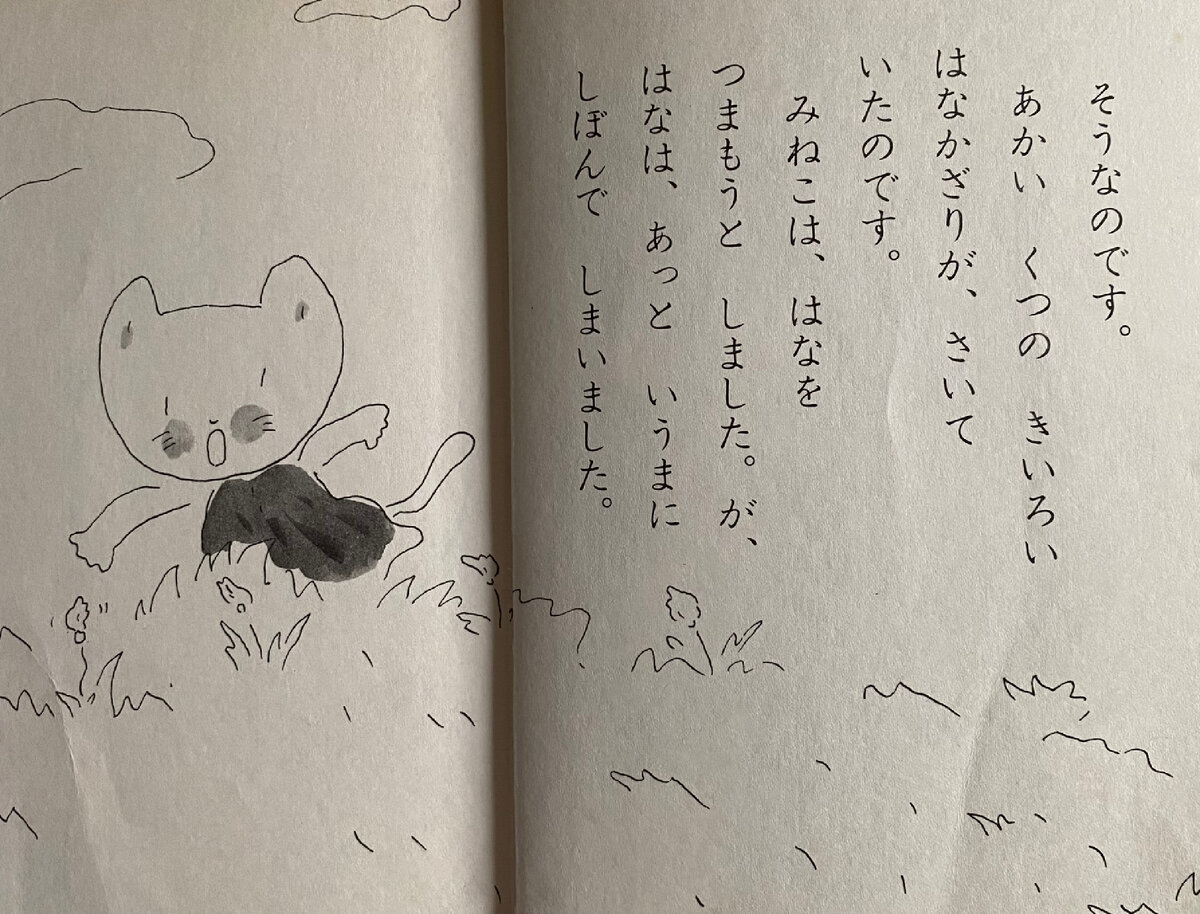 そうなのです。
あかい くつの きいろい
はなかざりが、さいて
いたのです。
みねこは、はなを
つまもうと しました。が、
はなは、あっと いうまに
しぼんで しまいました。